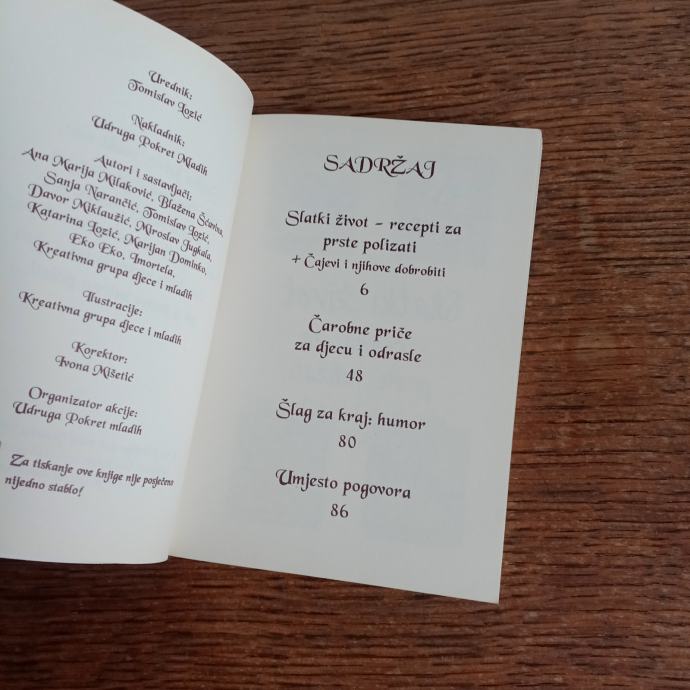 Urednik:
Tomislav Lozić
Nakladnik:
Udruga Pokret Mladih
Autori i sastavljači:
Ana Marija Milaković, Blažena
Sanja Narančić, Tomislav Lozić,
Davor Miklaužić, Miroslav Jugkala,
Katarina Lozić, Marijan Dominko,
Eko Eko, Imortela,
Kreativna grupa djece i mladih
Ilustracije:
Kreativna grupa djece i mladih
Korektor:
Ivona Mišetić
Organizator akcije:
Udruga Pokret mladih
Za tiskanje ove knjige nije posječeno
nijedno stablo!
SADRŽAJ
Slatki život - recepti za
prste polizati
+ Čajevi i njihove dobrobiti
6
Čarobne priče
za djecu i odrasle
48
Šlag za kraj: humor
80
Umjesto pogovora
86